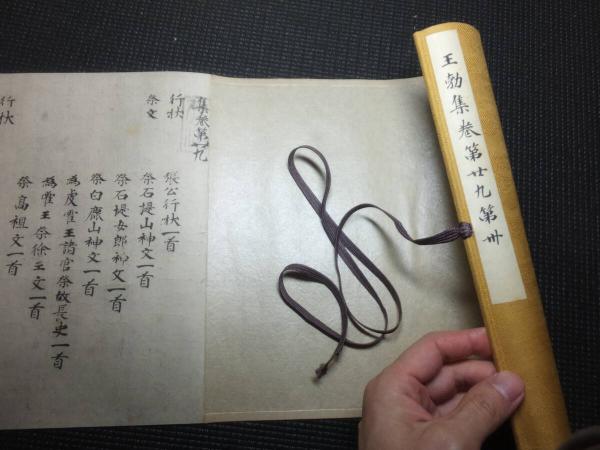 王勃集卷第廿九第卅
集卷第廿九
行狀
張公行狀一首
祭文
祭石堤山神文一首
祭石堤女郎神文一首
祭白鹿山神文一首
為虔霍王諸官祭故長史一首
為霍王祭徐王文一首
祭高祖文一首
行狀